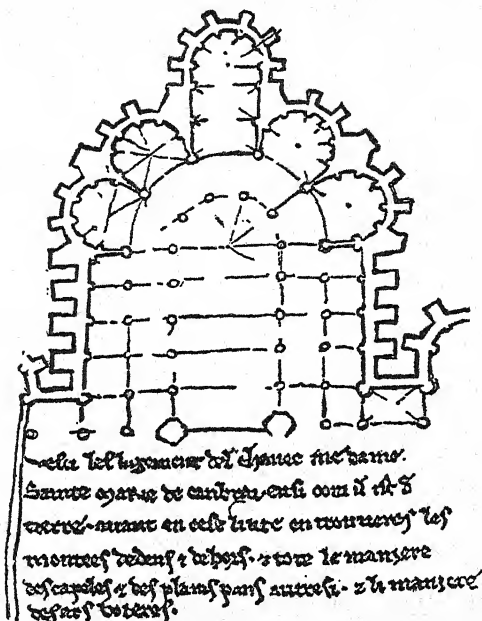 esci leslligement del chavec me dame.
Sainte marie de canbrai ensi com il ist d
tierre. avant en cest livre en trouveres les
montees dedens ⁊ dehors. ⁊ tote le maniere
des capeles ⁊ des plains pans autresi. ⁊ li maniere
des ars boteres.